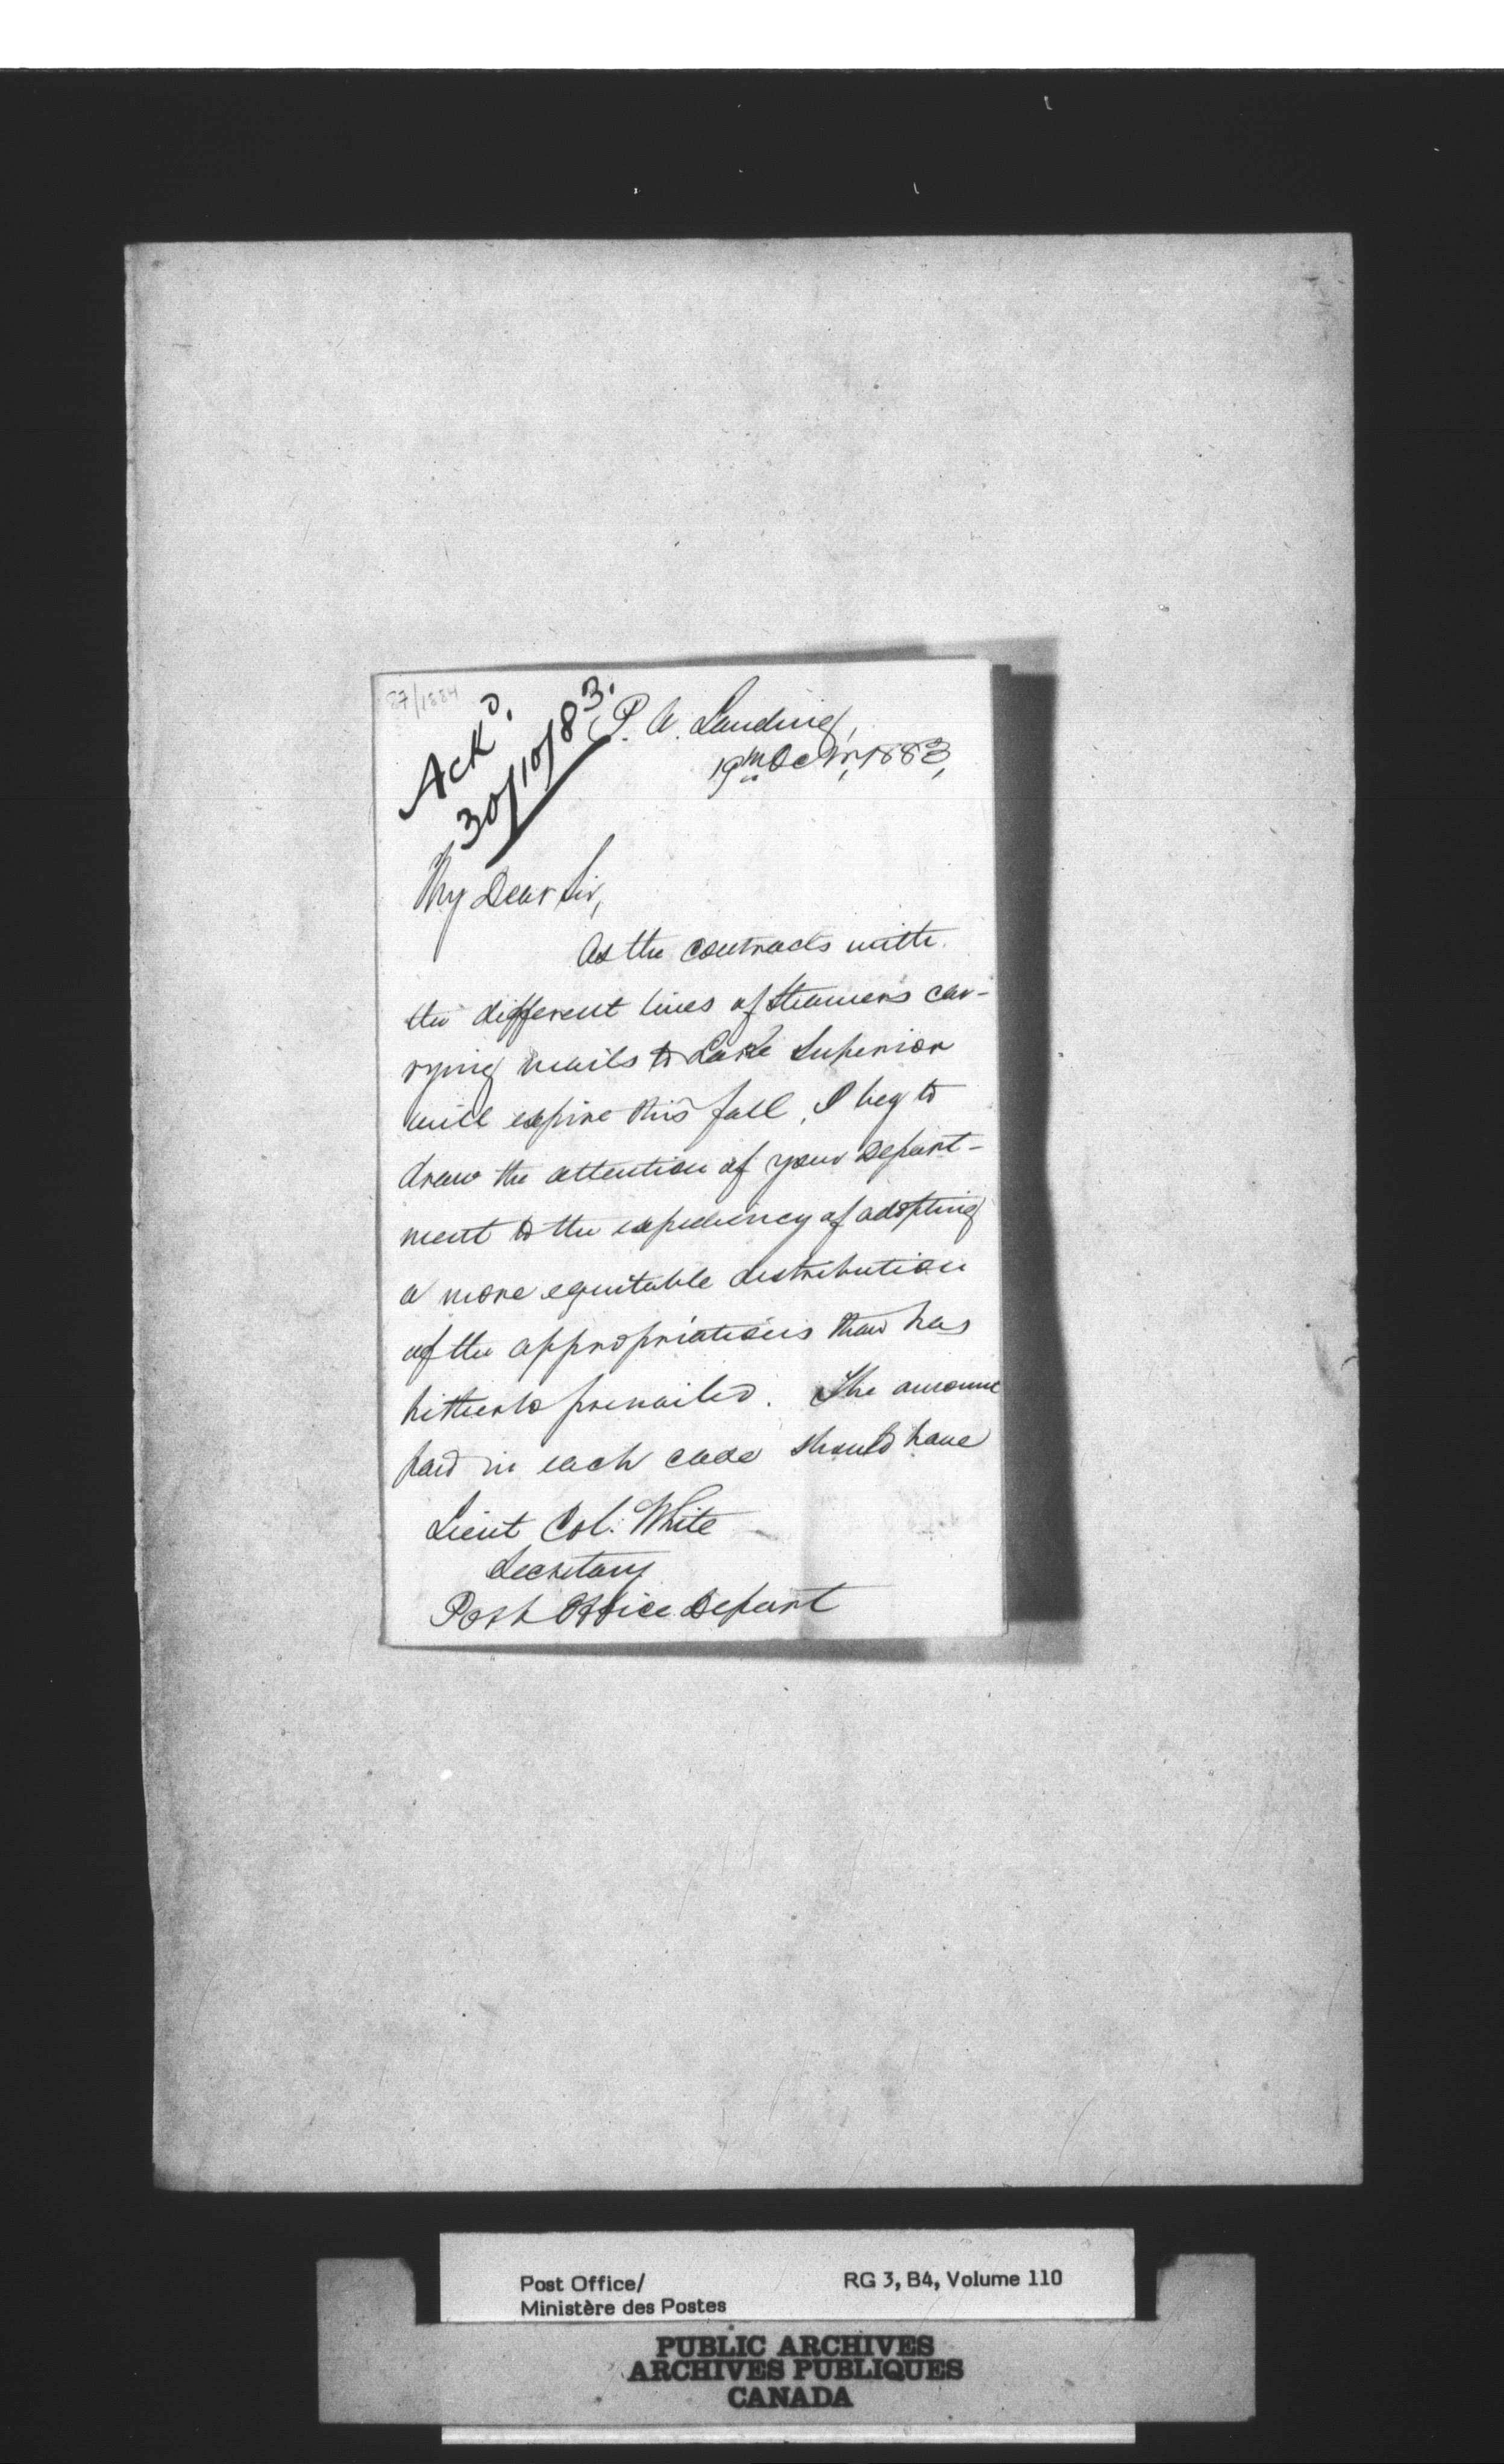 87/1884
Ackd.
30/10/83.
P. A. Landing,
19th Octr, 1883,
My Dear Sir,
As the contracts with
the different lines of Steamers car-
rying mails to Lake Superior
will expire this fall, I beg to
draw the attention of your Depart-
ment to the expediency of adopting
a more equitable distribution
of the appropriations than has
hitherto prevailed. The amount
paid in each case should have
Lieut Col. White
Secretary
Post Office Depart
Post Office/
Ministère des Postes
RG 3, B4, Volume 110
PUBLIC ARCHIVES
ARCHIVES PUBLIQUES
CANADA